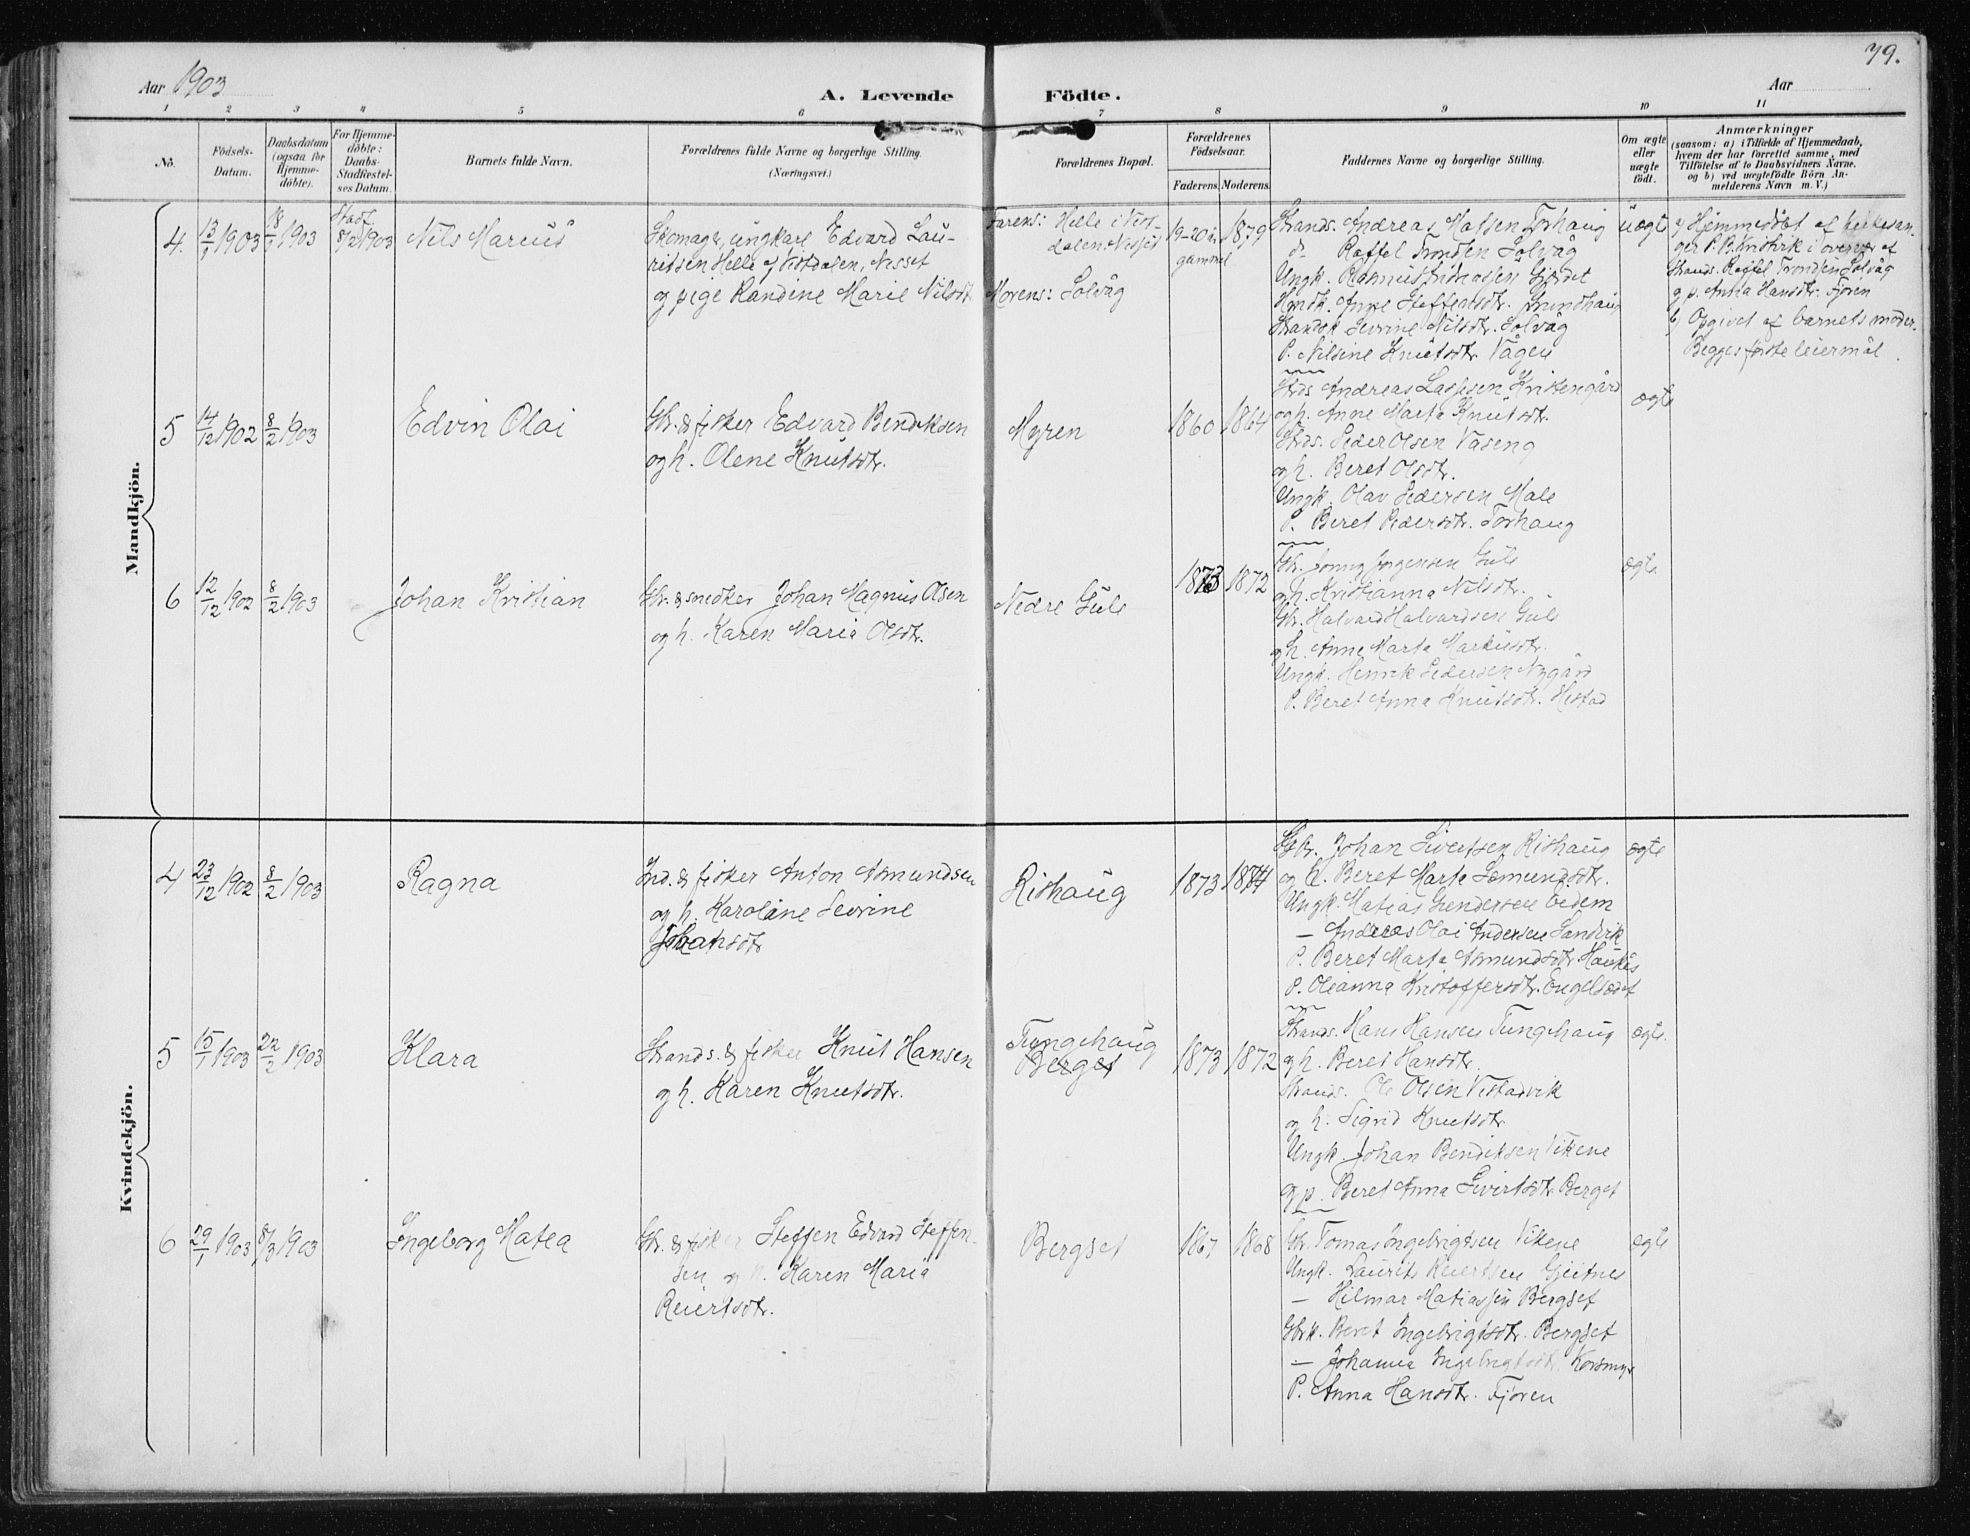 79.
Aar 1903
A. Levende Födte.
Aar
1 2 3 4 5 6 7 8 9 10 11
No.
Födsels-Datum.
Daabsdatum (ogsaa for Hjemmedöbte).
For Hjemmedöbte: Daabs-Stadfæstelses Datum.
Barnets fulde Navn.
Forældrenes fulde Navne og borgerlige Stilling. (Næringsvei.)
Forældrenes Bopæl.
Forældrenes Födselsaar.
Faderens. Moderens.
Faddernes Navne og borgerlige Stilling.
Om ægte eller uægte födt.
Anmærkninger
(saasom: a) i Tilfælde af Hjemmedaab,
hvem der har forrettet samme, med
Tilföielse af to Daabsvidners Navne.
og b) ved uægtefödte Börn An-
melderens Navn m. V.)
Mandkjön.
4. 13/1 1903 18/1 1903 Stadf. 8/2 1903 Nils Marius
Skomager, ungkarl Edvard Lau-
ritsen Helle af Vistdalen, Nesset
og pige Randine Marie Nilsdtr
Farens: Helle i Vist-
dalen, Nesset
Morens: Solvåg
19-20 år gammel 1879
Strands. Andreas Matsen Torhaug
do Raffel Trondsen Solvåg
Ungk. Rasmus
Steffensdtr.
Nilsdtr. Solvåg
P. Nilsine Knutsdtr. Vågen
uægt
a) Hjemmedöbt af kirkesan-
ger P. i overvær af
Strands. Raffel Trondsen Solvåg
og p. Anna Hansdtr. Fjören
b) Opgivet af barnets moder.
Begges förste leiermål.
5 14/12 1902 8/2 1903 Edvin Olai
Gbr. & fisker Edvard Bendiksen
og h. Olene Knutsdtr.
Myren 1860 1864
Andreas Lassesen Kristengård
og h. Anne Marta Knutsdtr.
Peder Olsen Våseng
og h. Beret Olsdtr.
Ungk. Olav Pedersen Male
P. Beret Pedersdtr. Torhaug
ægte
6 12/12 1902 8/2 1903 Johan Kristian
Gbr. & snedker Johan Magnus Olsen
og h. Karen Maria Olsdtr.
Nedre Gule 1873 1872
Gbr. Jörgensen Gule
og h. Kristianna Nilsdtr.
Gbr. Halvard Halvardsen Gule
og h. Anne Marta Markusdtr.
Ungk. Henrik Pedersen Nygård
P. Beret Anna Knutsdtr. Hestad
ægte
Kvindekjön.
4 23/12 1902 8/2 1903 Ragna
Ind. & fisker Anton Asmundsen
og h. Karoline Sevrine
Johansdtr
Rishaug 1873 1874
Gbr. Johan Sivertsen Rishaug
og h. Beret Marta Sæmundsdtr.
Ungk. Matias Gundersen
— Andreas Olai Andersen Sandvik
P. Beret Marta Asmundsdtr. Haukås
P. Olianna Kristoffersdtr. Engelsædet
ægte
5 15/1 1903 22/2 1903 Klara
Strands. & fisker Knut Hansen
og h. Karen Knutsdtr.
Tungehaug
Berget
1873 1872
Strands. Hans Hansen Tungehaug
og h. Beret Hansdtr.
Strands. Ole Olsen Vestadvik
og h. Sigrid Knutsdtr.
Ungk. Johan Bendiksen Vikene
og p. Beret Anna Sivertsdtr. Berget
ægte
6 29/1 1903 8/3 1903 Ingeborg Matea
Gbr. & fisker Steffen Edvard Steffen-
sen og h. Karen Maria
Reiertsdtr.
Bergset 1867 1868
Gbr. Tomas Ingebrigtsen Vikene
Ungk. Laurits Reiertsen Gjeitnes
— Hilmar Matiassen Bergset
Gbrk. Beret Ingebrigtsdtr. Bergset
— Johanna Ingebrigtsdtr. Korsmyr
P. Anna Hansdtr. Fjören
ægte